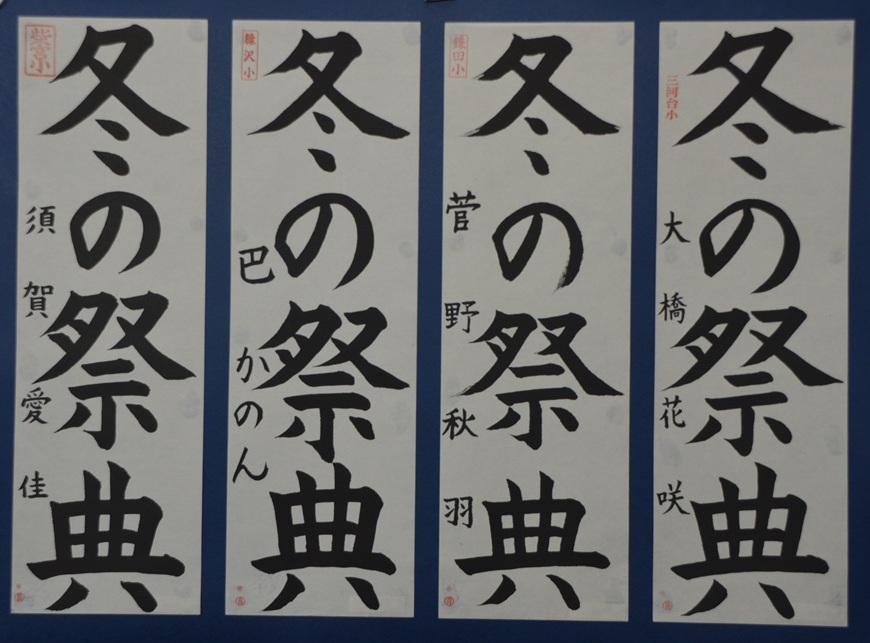 紫宮小
冬の祭典
須賀愛佳
糠沢小
冬の祭典
巴かのん
鎌田小
冬の祭典
菅野秋羽
三河台小
冬の祭典
大橋花咲